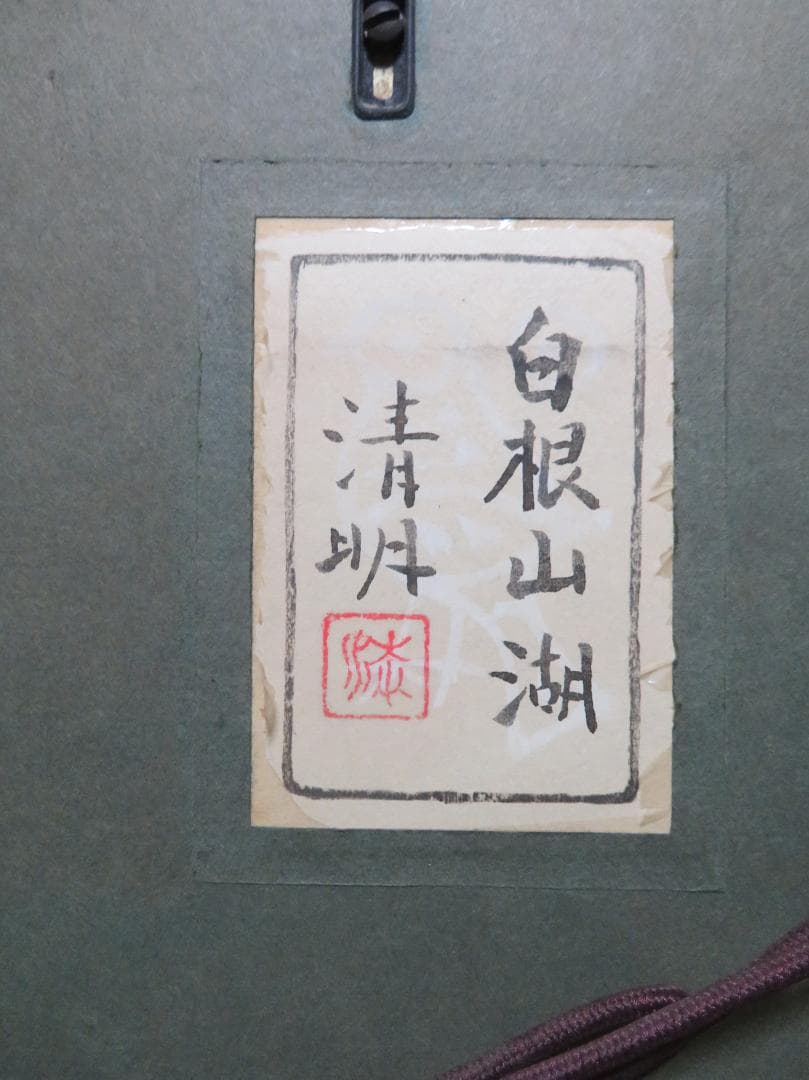 白根山湖
清明